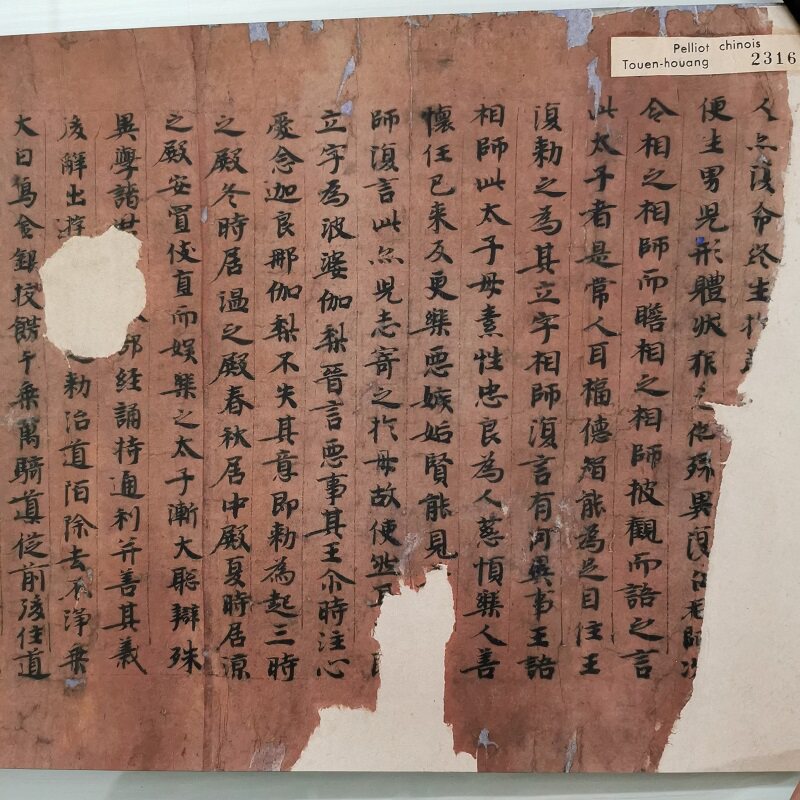 Pelliot chinois
Touen-houang 2316
人亦復命終生於
便生男兒形體狀殊異復
令相之相師而瞻相之相師披觀而語之言
此太子者是常人耳福德智能為足自住王
復勑之為其立字相師復言有何異事王語
相師此太子母素性忠良為人慈愼樂人善
懷任已来反更樂惡嫉妬賢能見
師復言此亦兒志寄之於母故便
立字為波婆伽梨晉言惡事其王尒時注心
愛念迦良那伽梨不失其意即勑為起三時
之殿冬時居温之殿春秋居中殿夏時居涼
之殿安置伎直而娛樂之太子漸大聡辯殊
異學諸世部經誦持通利并善其義
後辭出遊勑治道陌除去不淨乘
大白鳥金銀挍餝千乘萬騎導從前後住道